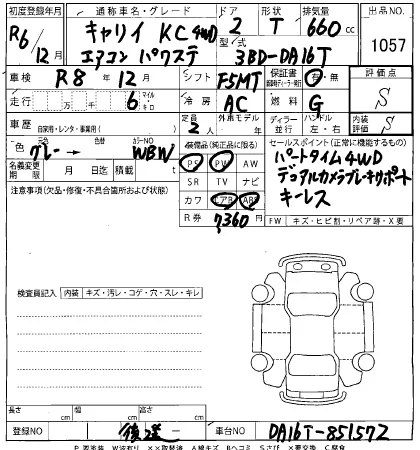 初度登録年月 通称車名・グレード ドア 形状 排気量 出品NO.
R6/12月 キャリイ KC 4WD エアコン パワステ 2 T 660cc 1057
型式 3BD-DA16T
車検 R8年12月 シフト F5MT 保証書 有・無 評価点 S
走行 万 千 6 マイル キロ 冷房 AC 燃料 G
車歴 自家用・レンタ・事業用( ) 定員 2人 外車モデル 年 ディーラー 並行 ハンドル 左・右 内装評価 S
色 元色 グレー 色替 カラーNO WBW 装備品(純正品に限る) セールスポイント(正常に機能するもの)
名義変更期限 月 日迄 積載 t PS PW AW パートタイム4WD
注意事項(欠品・修復・不具合箇所および状態) SR TV ナビ デュアルカメラブレーキサポート
カワ エアB ABS キーレス
R券 7360円 FW キズ・ヒビ割・リペア跡・X要
検査員記入 内装 キズ・汚レ・コゲ・穴・スレ・キレ
長さ cm 幅 cm 高さ cm
登録NO 後送 車台NO DA16T-851572
P 要塗装 W波有り ××取替済 A線キズ Bヘコミ Sさび ×要交換 C腐食